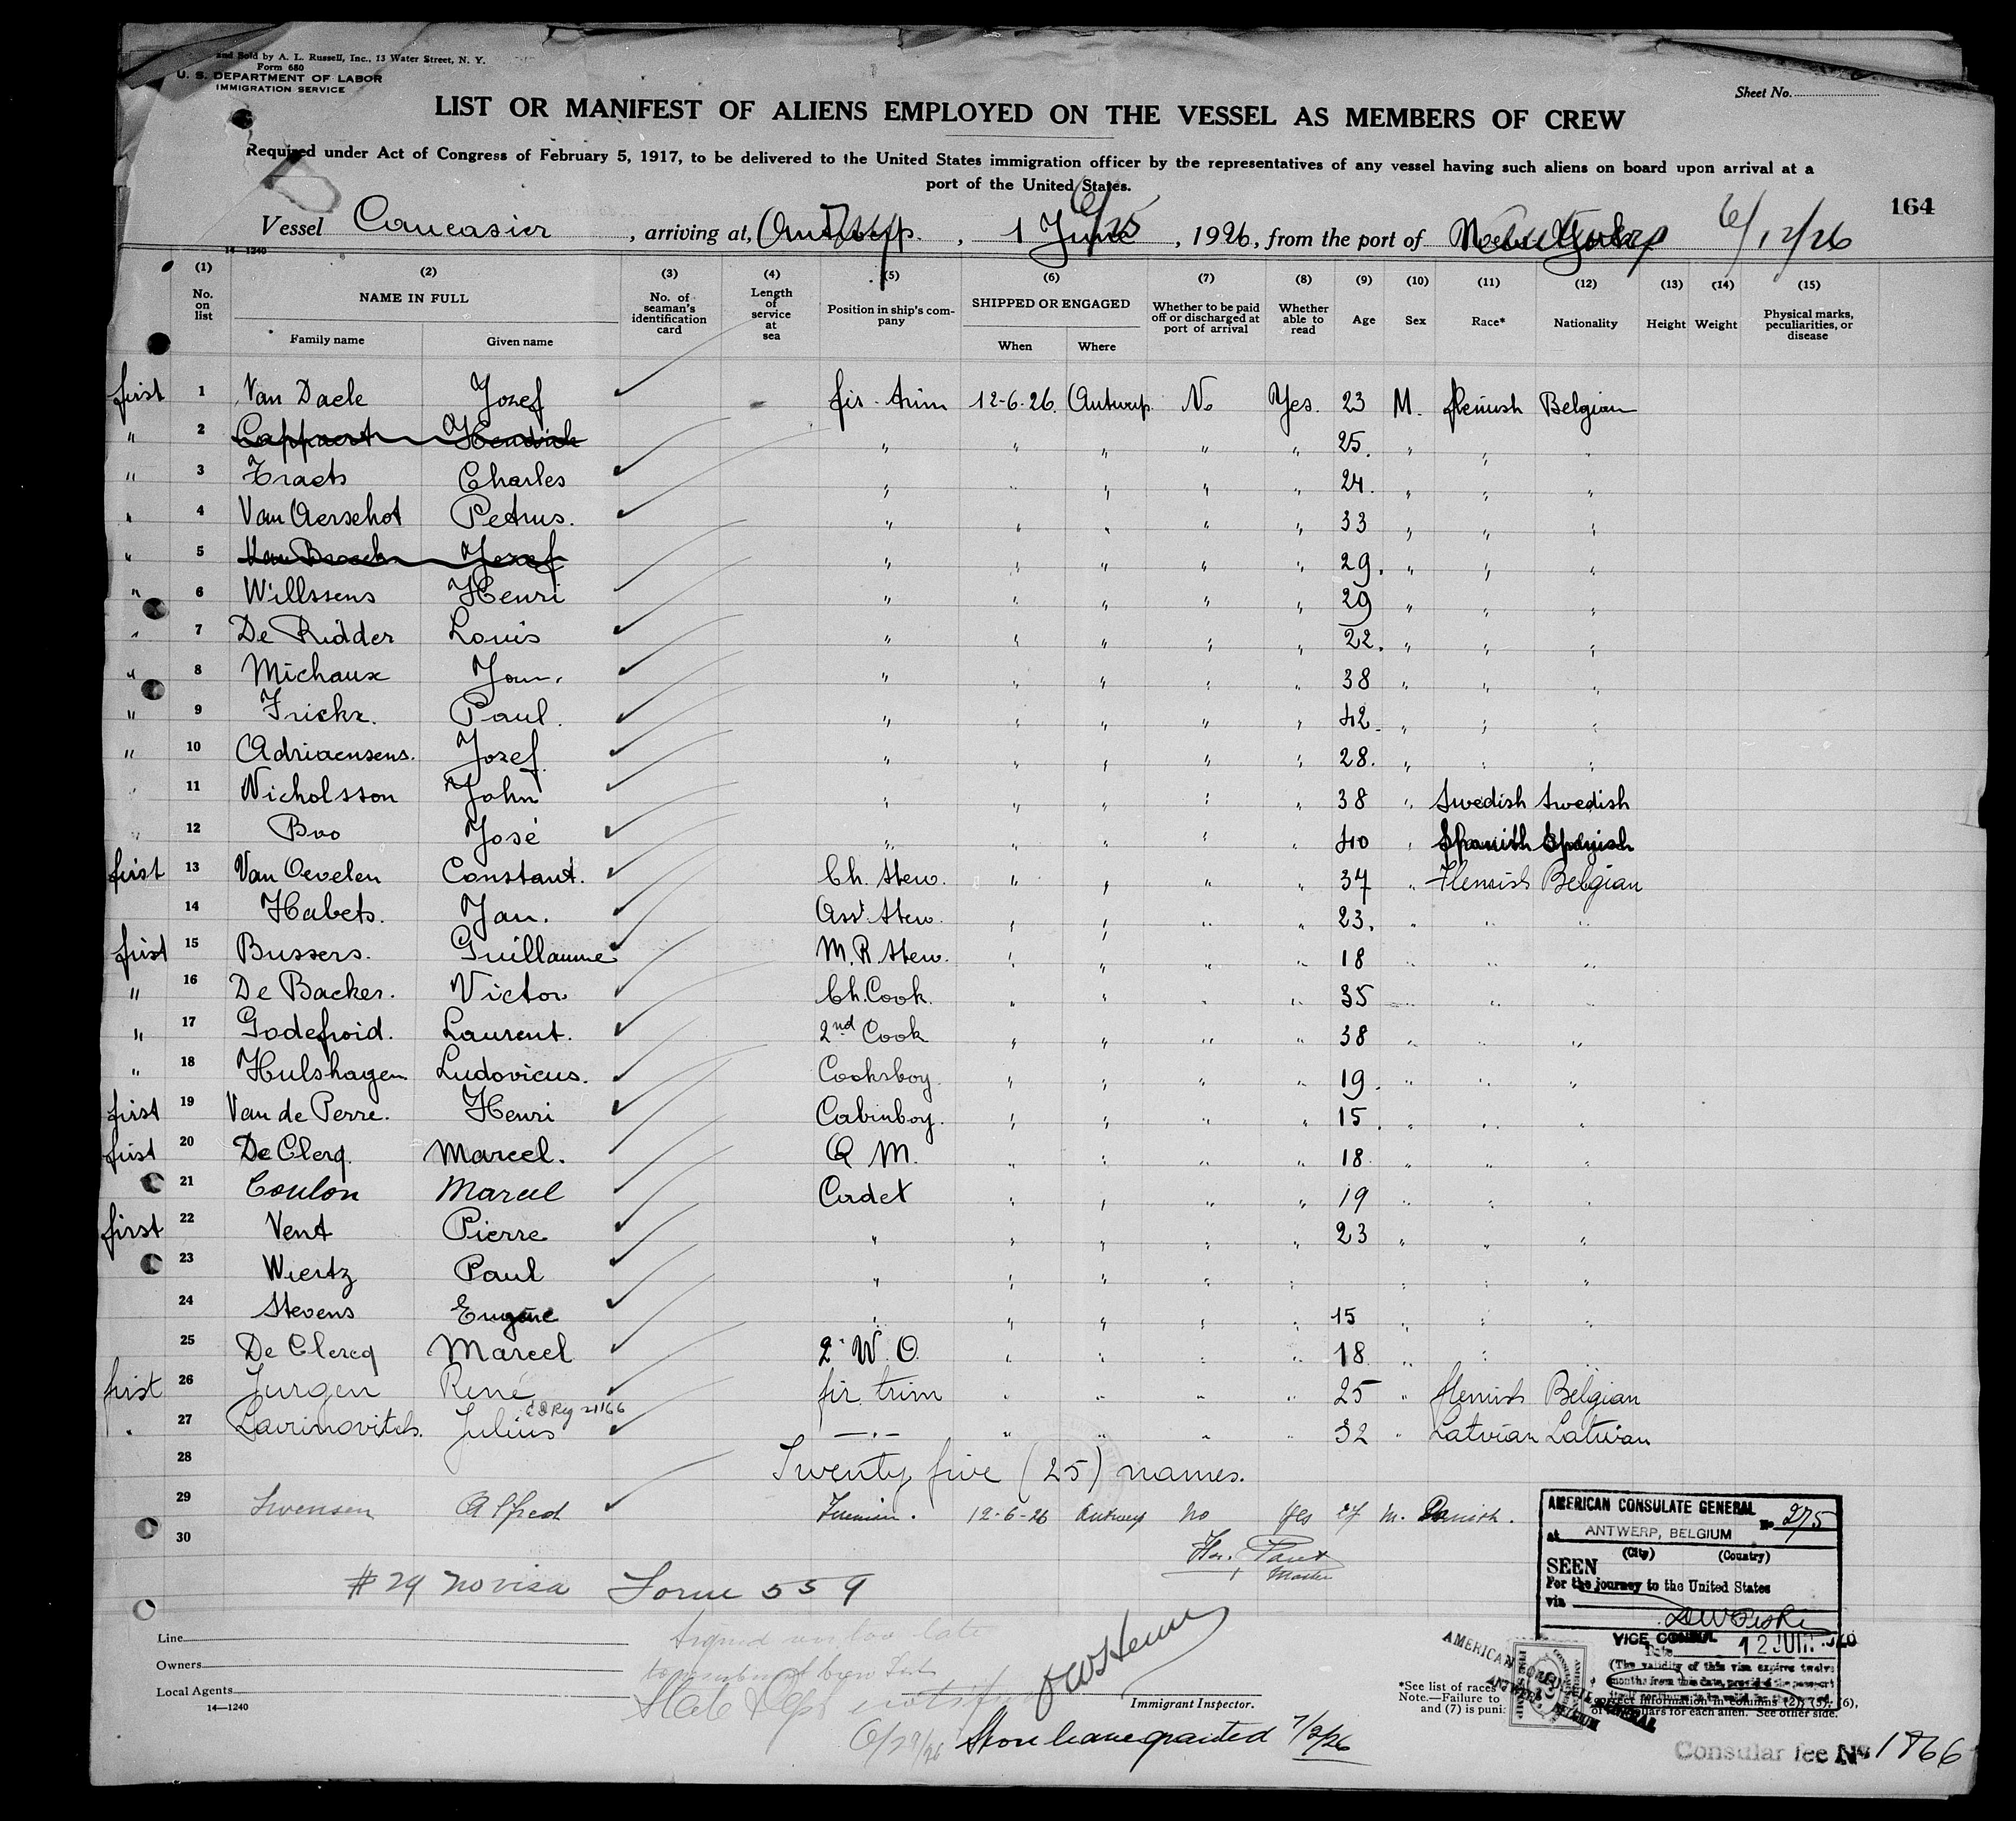 and Sold by A. L. Russell, Inc., 13 Water Street, N. Y.
Form 680
U. S. DEPARTMENT OF LABOR
IMMIGRATION SERVICE
Sheet No.
LIST OR MANIFEST OF ALIENS EMPLOYED ON THE VESSEL AS MEMBERS OF CREW
Required under Act of Congress of February 5, 1917, to be delivered to the United States immigration officer by the representatives of any vessel having such aliens on board upon arrival at a
port of the United States.
164
Vessel Caucasier, arriving at, Antwerp, 1 June 6/25, 1926, from the port of New York Antwerp 6/12/26
14—1240
(1) (2) (3) (4) (5) (6) (7) (8) (9) (10) (11) (12) (13) (14) (15)
No. on list NAME IN FULL Family name Given name No. of seaman's identification card Length of service at sea Position in ship's company SHIPPED OR ENGAGED When Where Whether to be paid off or discharged at port of arrival Whether able to read Age Sex Race* Nationality Height Weight Physical marks, peculiarities, or disease
first 1 Van Daele Jozef fir-trim 12-6-26. Antwerp. No Yes. 23 M. flemish Belgian
" 2 Cappaert Hendrik " " " " " 25. " " "
" 3 Traets Charles " " " " " 24. " " "
" 4 Van Aerschot Petrus. " " " " " 33 " " "
" 5 Van Broeck Jozef " " " " " 29. " " "
" 6 Willssens Henri " " " " " 29 " " "
" 7 De Ridder Louis " " " " " 22. " " "
" 8 Michaux Jean. " " " " " 38 " " "
" 9 Frickx. Paul. " " " " " 42. " " "
" 10 Adriaensens. Jozef. " " " " " 28. " " "
" 11 Nicholsson John " " " " " 38 " Swedish Swedish
" 12 Boo José " " " " " 40 " Spanish Spanish
first 13 Van Oevelen Constant. Ch. Stew. " " " " 37 " Flemish Belgian
14 Habets. Jan. Asst Stew. " " " " 23. " " "
first 15 Bussers. Guillaume M.R. Stew. " " " " 18 " " "
" 16 De Backer. Victor Ch. Cook. " " " " 35 " " "
" 17 Godefroid. Laurent. 2nd Cook " " " " 38 " " "
" 18 Hulshagen Ludovicus. Cooksboy. " " " " 19. " " "
first 19 Van de Perre. Henri Cabinboy. " " " " 15. " " "
first 20 De Clerq. Marcel. Q M. " " " " 18. " " "
21 Coulon Marcel Cadet " " " " 19 " " "
first 22 Vent Pierre " " " " " 23 " " "
23 Wiertz Paul " " " " " " " "
24 Stevens Eugène " " " " " 15 " " "
25 De Clercq Marcel 2 W. O. " " " " 18. " "
first 26 Jurgen René fir. trim " " " " 25 " flemish Belgian
" 27 Lavrinovitch. Julius Reg 21166 —"— " " " " 32 " Latvian Latvian
28 Twenty five (25) names.
29 Swensen Alfred Fireman. 12-6-26 Antwerp no yes 27 M. Danish.
30
Master
#29 no visa Form 559
Signed on too late
Line
Owners
Local Agents
14—1240
State Dept notified
6/29/26 Shore leave granted 7/2/26
Immigrant Inspector.
*See list of races
Note.—Failure to
and (7) is puni
correct information in columns (2), (5), (6),
of dollars for each alien. See other side.
AMERICAN CONSULATE GENERAL
No 275
at ANTWERP, BELGIUM
(City) (Country)
SEEN
For the journey to the United States
via
VICE CONSUL
Date 12 JUIN 1926
(The validity of this visa expires twelve
months from this date, provided the passport
itself continues to be valid for that period.)
AMERICAN CONSULATE GENERAL
ANTWERP, BELGIUM
Consular fee No 1866